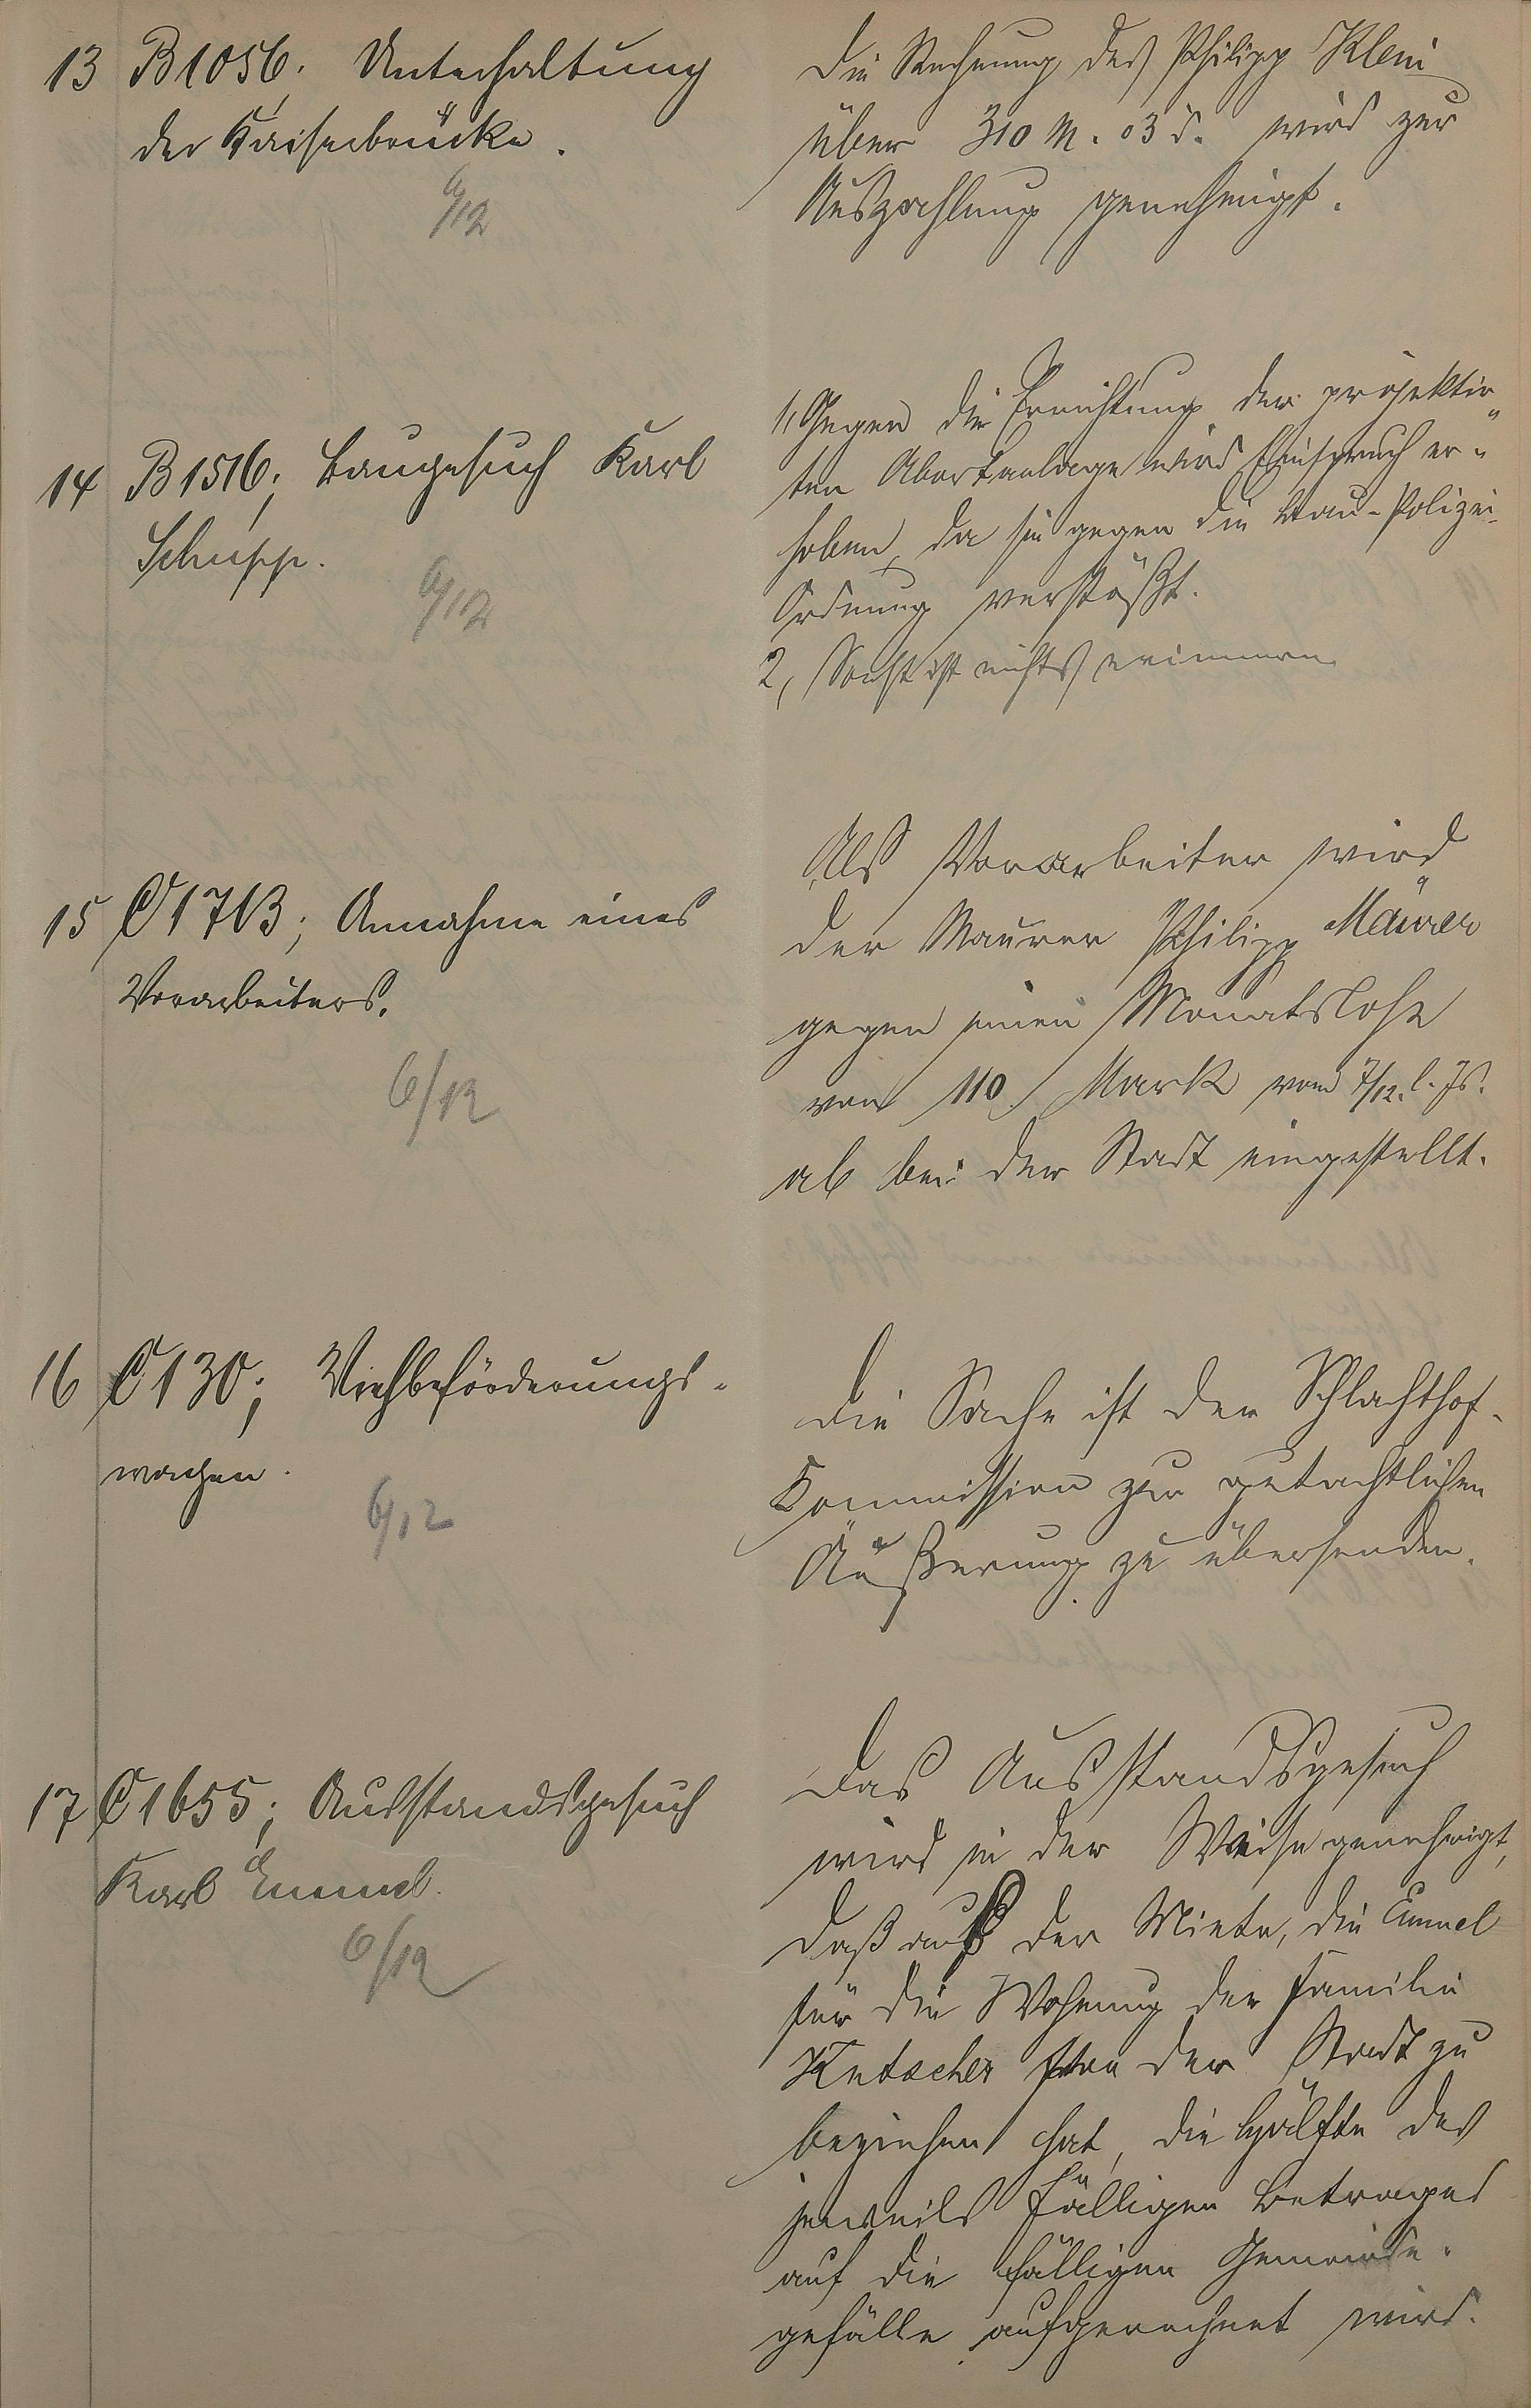 13 B 1056. Unterhaltung
der Kaiserbrücke.
6/12
Die Rechnung des Philipp Klein
über 310 M. 03 d. wird zur
Auszahlung genehmigt.
14 B 1516; Baugesuch Karl
Schupp.
6/12
1, Gegen die Errichtung der projektir"
ten Abortanlage wird Einspruch er"
hoben, da sie gegen die Bau-Polizei-
Ordnung verstößt.
2, Sonst ist nichts erinnern.
15 C 1713; Annahme eines
Vorarbeiters.
6/12
Als Vorarbeiter wird
der Maurer Philipp Mäurer
gegen einen Monatslohn
von 110 Mark vom 7/12. l. Js.
ab bei der Stadt eingestellt.
16 C 130; Viehbeförderungs-
wagen.
6/12
Die Sache ist der Schlachthof-
Kommission zur gutachtlichen
Äußerung zu übersenden.
17 C 1655; Ausstandsgesuch
Karl Emmel.
6/12
Das Ausstandsgesuch
wird in der Weise genehmigt,
daß auf der Miete, die Emmel
für die Wohnung der Familie
von der Stadt zu
beziehen hat, die Hälfte des
jeweils fälligen Betrages
auf die fälligen Gemeinde-
gefälle aufgerechnet wird.